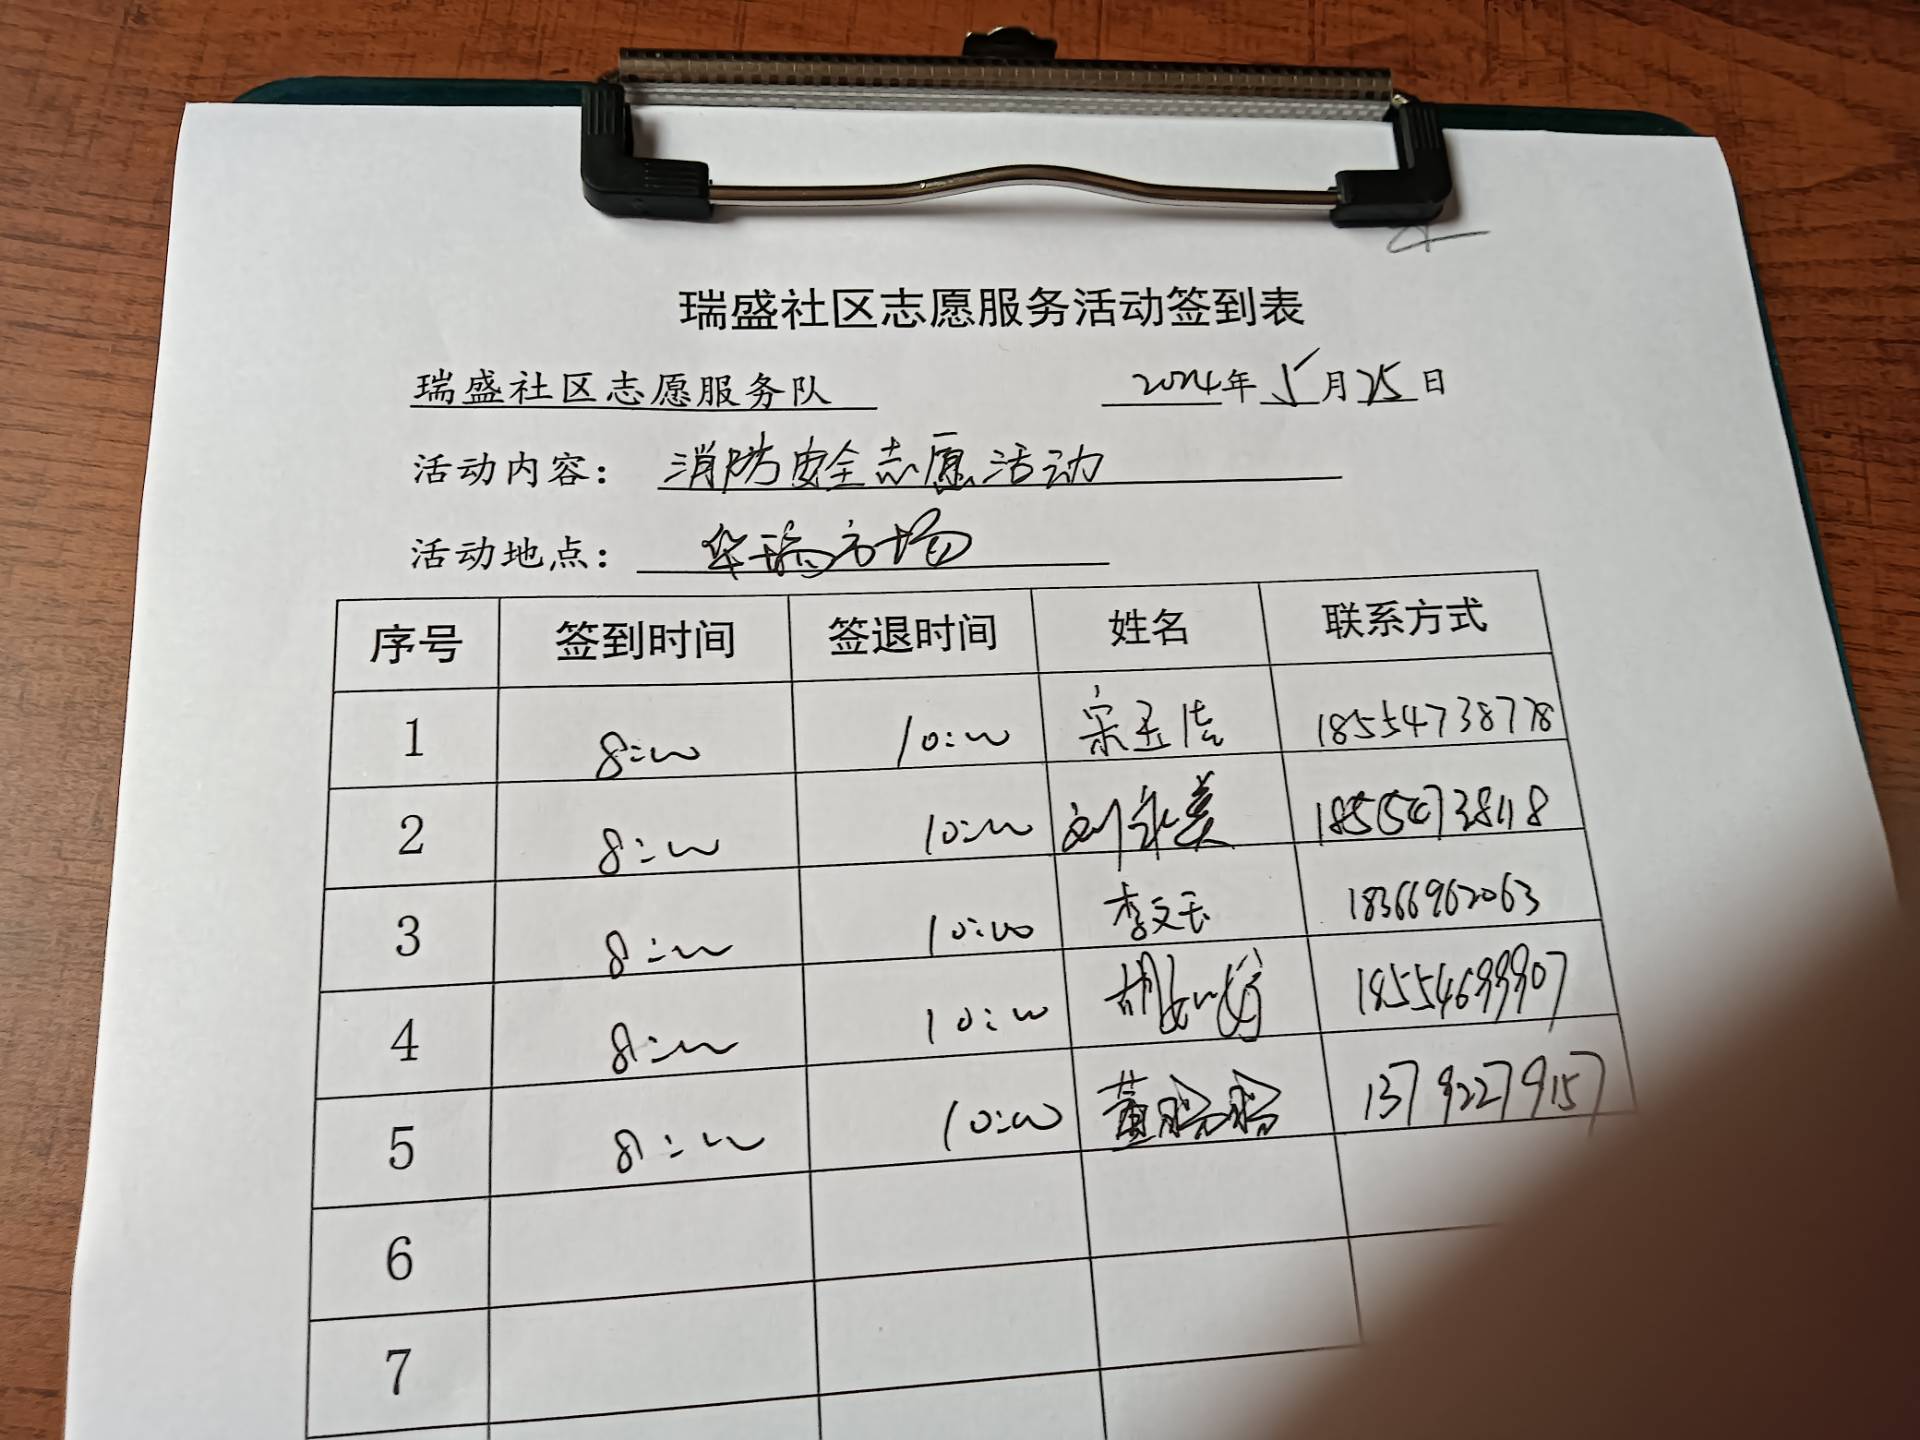 瑞盛社区志愿服务活动签到表
瑞盛社区志愿服务队 2024年5月25日
活动内容: 消防安全志愿活动
活动地点: 华瑞市场
序号 签到时间 签退时间 姓名 联系方式
1 8:00 10:00 宋玉洁 18554738778
2 8:00 10:00 刘永美 18554738118
3 8:00 10:00 李文玉 18366962063
4 8:00 10:00 胡 18554699907
5 8:00 10:00 黄 13792279157
6
7